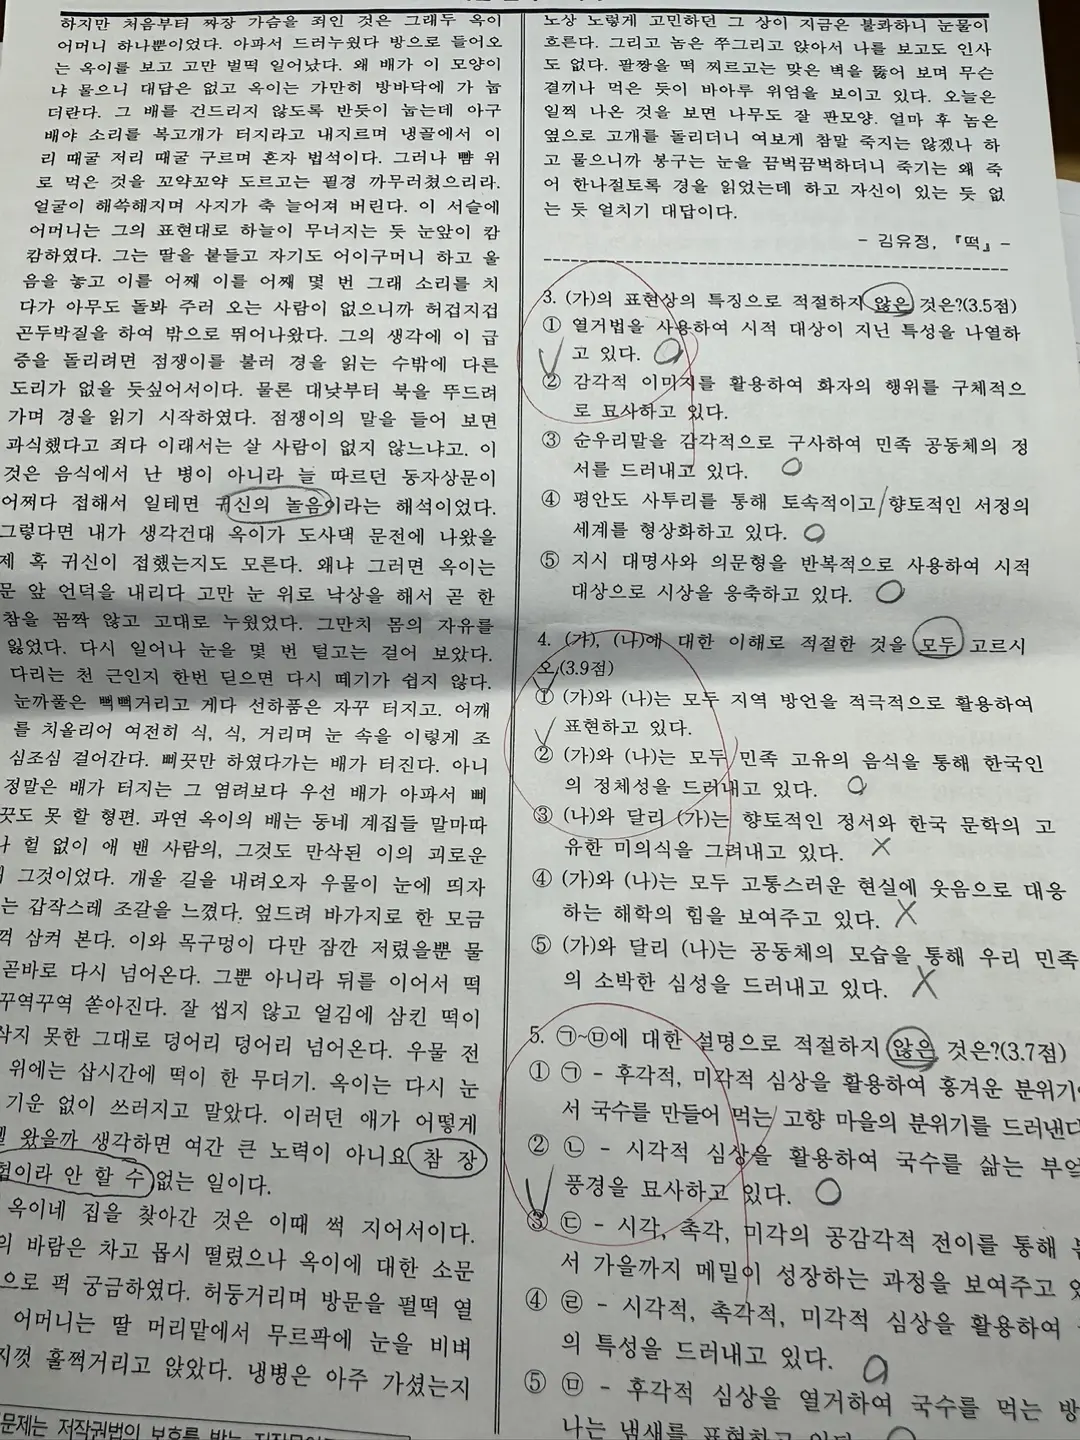 하지만 처음부터 짜장 가슴을 죄인 것은 그래두 옥이
어머니 하나뿐이었다. 아파서 드러누웠다 방으로 들어오
는 옥이를 보고 고만 벌떡 일어났다. 왜 배가 이 모양이
냐 물으니 대답은 없고 옥이는 가만히 방바닥에 가 눕
더란다. 그 배를 건드리지 않도록 반듯이 눕는데 아구
배야 소리를 복고개가 터지라고 내지르며 냉골에서 이
리 때굴 저리 때굴 구르며 혼자 법석이다. 그러나 뺨 위
로 먹은 것을 꼬약꼬약 도르고는 필경 까무러쳤으리라.
얼굴이 해쓱해지며 사지가 축 늘어져 버린다. 이 서슬에
어머니는 그의 표현대로 하늘이 무너지는 듯 눈앞이 캄
캄하였다. 그는 딸을 붙들고 자기도 어이구머니 하고 울
음을 놓고 이를 어째 이를 어째 몇 번 그래 소리를 치
다가 아무도 돌봐 주러 오는 사람이 없으니까 허겁지겁
곤두박질을 하여 밖으로 뛰어나왔다. 그의 생각에 이 급
증을 돌리려면 점쟁이를 불러 경을 읽는 수밖에 다른
도리가 없을 듯싶어서이다. 물론 대낮부터 북을 뚜드려
가며 경을 읽기 시작하였다. 점쟁이의 말을 들어 보면
과식했다고 죄다 이래서는 살 사람이 없지 않느냐고. 이
것은 음식에서 난 병이 아니라 늘 따르던 동자상문이
어쩌다 접해서 일테면 귀신의 놀음이라는 해석이었다.
그렇다면 내가 생각건대 옥이가 도사댁 문전에 나왔을
제 혹 귀신이 접했는지도 모른다. 왜냐 그러면 옥이는
문 앞 언덕을 내리다 고만 눈 위로 낙상을 해서 곧 한
참을 꼼짝 않고 고대로 누웠었다. 그만치 몸의 자유를
잃었다. 다시 일어나 눈을 몇 번 털고는 걸어 보았다.
다리는 천 근인지 한번 딛으면 다시 떼기가 쉽지 않다.
눈까풀은 뻑뻑거리고 게다 선하품은 자꾸 터지고. 어깨
를 치올리어 여전히 식, 식, 거리며 눈 속을 이렇게 조
심조심 걸어간다. 삐끗만 하였다가는 배가 터진다. 아니
정말은 배가 터지는 그 염려보다 우선 배가 아파서 삐
끗도 못 할 형편. 과연 옥이의 배는 동네 계집들 말마따
나 헐 없이 애 밴 사람의, 그것도 만삭된 이의 괴로운
그것이었다. 개울 길을 내려오자 우물이 눈에 띄자
는 갑작스레 조갈을 느꼈다. 엎드려 바가지로 한 모금
꺽 삼켜 본다. 이와 목구멍이 다만 잠깐 저렸을뿐 물
곧바로 다시 넘어온다. 그뿐 아니라 뒤를 이어서 떡
꾸역꾸역 쏟아진다. 잘 씹지 않고 얼김에 삼킨 떡이
삭지 못한 그대로 덩어리 덩어리 넘어온다. 우물 전
위에는 삽시간에 떡이 한 무더기. 옥이는 다시 눈
기운 없이 쓰러지고 말았다. 이러던 애가 어떻게
왔을까 생각하면 여간 큰 노력이 아니요 참 장
험이라 안 할 수 없는 일이다.
옥이네 집을 찾아간 것은 이때 썩 지어서이다.
의 바람은 차고 몹시 떨렸으나 옥이에 대한 소문
으로 퍽 궁금하였다. 허둥거리며 방문을 펄떡 열
어머니는 딸 머리맡에서 무르팍에 눈을 비벼
지껏 훌쩍거리고 앉았다. 냉병은 아주 가셨는지
문제는 저작권법의 보호를 받는
노상 노렇게 고민하던 그 상이 지금은 불콰하니 눈물이
흐른다. 그리고 놈은 쭈그리고 앉아서 나를 보고도 인사
도 없다. 팔짱을 떡 찌르고는 맞은 벽을 뚫어 보며 무슨
결끼나 먹은 듯이 바아루 위엄을 보이고 있다. 오늘은
일찍 나온 것을 보면 나무도 잘 판모양. 얼마 후 놈은
옆으로 고개를 돌리더니 여보게 참말 죽지는 않겠나 하
고 물으니까 봉구는 눈을 끔벅끔벅하더니 죽기는 왜 죽
어 한나절토록 경을 읽었는데 하고 자신이 있는 듯 없
는 듯 얼치기 대답이다.
- 김유정, 『떡』 -
3. (가)의 표현상의 특징으로 적절하지 않은 것은?(3.5점)
① 열거법을 사용하여 시적 대상이 지닌 특성을 나열하
고 있다.
② 감각적 이미지를 활용하여 화자의 행위를 구체적으
로 묘사하고 있다.
③ 순우리말을 감각적으로 구사하여 민족 공동체의 정
서를 드러내고 있다.
④ 평안도 사투리를 통해 토속적이고 향토적인 서정의
세계를 형상화하고 있다.
⑤ 지시 대명사와 의문형을 반복적으로 사용하여 시적
대상으로 시상을 응축하고 있다.
4. (가), (나)에 대한 이해로 적절한 것을 모두 고르시
오.(3.9점)
① (가)와 (나)는 모두 지역 방언을 적극적으로 활용하여
표현하고 있다.
② (가)와 (나)는 모두 민족 고유의 음식을 통해 한국인
의 정체성을 드러내고 있다.
③ (나)와 달리 (가)는 향토적인 정서와 한국 문학의 고
유한 미의식을 그려내고 있다.
④ (가)와 (나)는 모두 고통스러운 현실에 웃음으로 대응
하는 해학의 힘을 보여주고 있다.
⑤ (가)와 달리 (나)는 공동체의 모습을 통해 우리 민족
의 소박한 심성을 드러내고 있다.
5. ㉠~㉤에 대한 설명으로 적절하지 않은 것은?(3.7점)
① ㉠ - 후각적, 미각적 심상을 활용하여 흥겨운 분위기에
서 국수를 만들어 먹는 고향 마을의 분위기를 드러낸다
② ㉡ - 시각적 심상을 활용하여 국수를 삶는 부엌
풍경을 묘사하고 있다.
③ ㉢ - 시각, 촉각, 미각의 공감각적 전이를 통해
서 가을까지 메밀이 성장하는 과정을 보여주고 있
④ ㉣ - 시각적, 촉각적, 미각적 심상을 활용하여
의 특성을 드러내고 있다.
⑤ ㉤ - 후각적 심상을 열거하여 국수를 먹는 방
나는 냄새를 표현하고 있다.